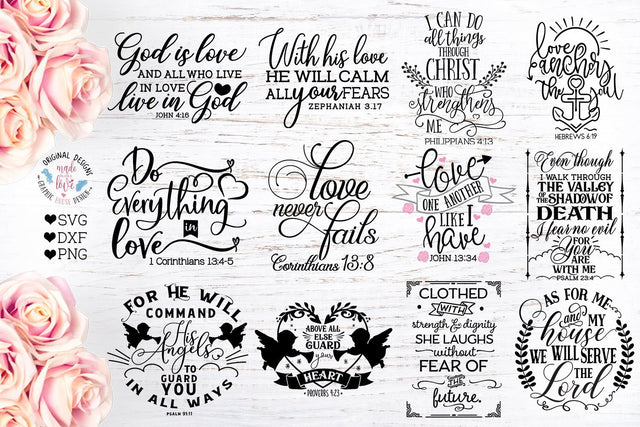 God is love
AND ALL WHO LIVE
IN LOVE
live in God
JOHN 4:16
With his love
HE WILL CALM
ALL your FEARS
ZEPHANIAH 3.17
I CAN DO
all THINGS
THROUGH
CHRIST
WHO
strengthens
ME
PHILIPPIANS 4:13
love
anchors
the soul
HEBREWS 6:19
ORIGINAL DESIGNS
made
with
love
GRAPHIC HOUSE DESIGN
SVG
DXF
PNG
Do
Everything
in
love
1 Corinthians 13.4-5
love
never
fails
Corinthians 13:8
love
ONE ANOTHER
LIKE I
have
JOHN 13:34
Even though
I WALK THROUGH
THE VALLEY
OF THE SHADOW OF
DEATH
I fear no evil
FOR
YOU
ARE
WITH ME
PSALM 23:4
FOR HE WILL
COMMAND
His
Angels
TO
GUARD
YOU
IN ALL WAYS
PSALM 91:11
ABOVE ALL
ELSE
GUARD
your
HEART
PROVERBS 4:23
CLOTHED
WITH
strength & dignity
SHE LAUGHS
without
FEAR OF
THE
future.
AS FOR ME
and MY
house
WE WILL SERVE
THE
Lord